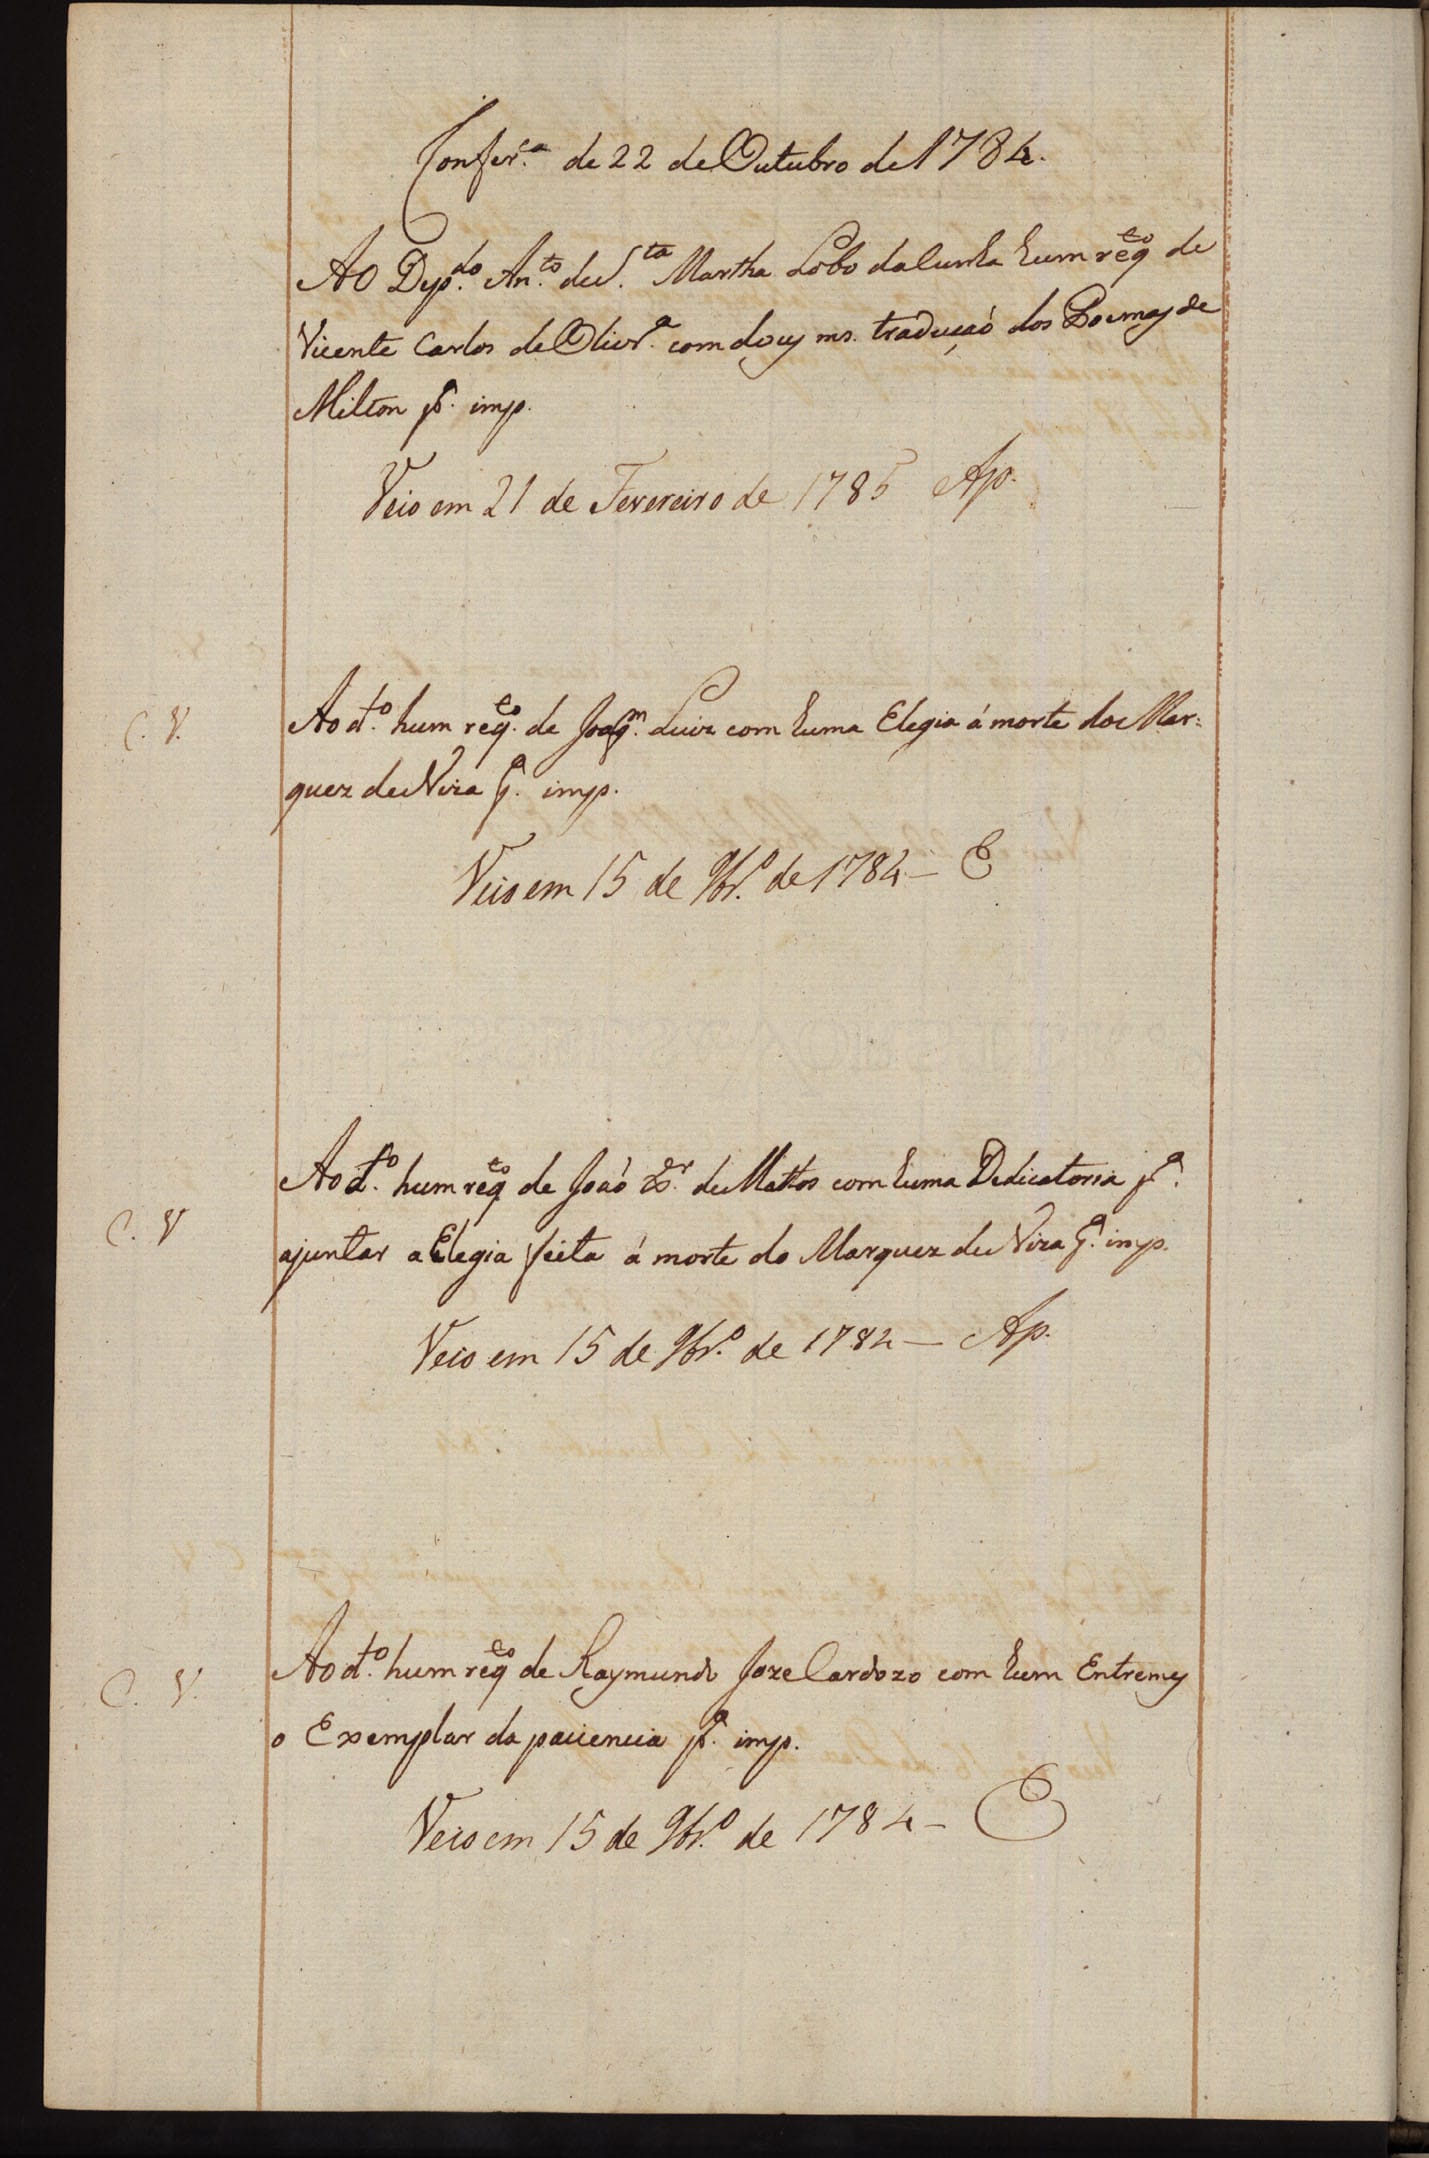 Confer.ª de 22 de Outubro de 1784.
Ao Dep.do An.to de S.ta Martha Lobo da Cunha hum req.to de
Vicente Carlos de Olivr.ª com dous ms. traducçaõ dos Poemas de
Milton p.ª imp.
Veio em 21 de Fevereiro de 1785 Ap.
C. V. Ao d.to hum req.to de Joaq.m Luiz com huma Elegia á morte do Mar:
quez de Niza p.ª imp.
Veio em 15 de 9br.º de 1784 — E
C. V Ao d.to hum req.to de Joaõ Roiz de Mattos com huma Dedicatoria p.ª
ajuntar a Elegia feita á morte do Marquez de Niza p.ª imp.
Veio em 15 de 9br.º de 1784 — Ap.
C. V. Ao d.to hum req.to de Raymundo Joze Cardozo com hum Entremes
o Exemplar da paciencia p.ª imp.
Veio em 15 de 9br.º de 1784 — E